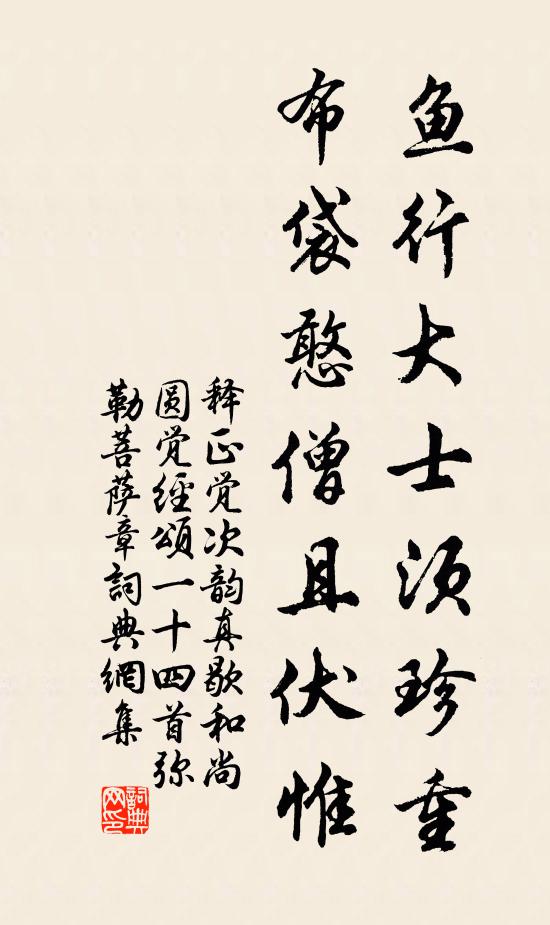 鱼行大士须珍重
布袋憨僧且伏惟
释正觉次韵真歇和尚
圆觉经颂一十四首弥
勒菩萨章詞典網集
詞典
网印